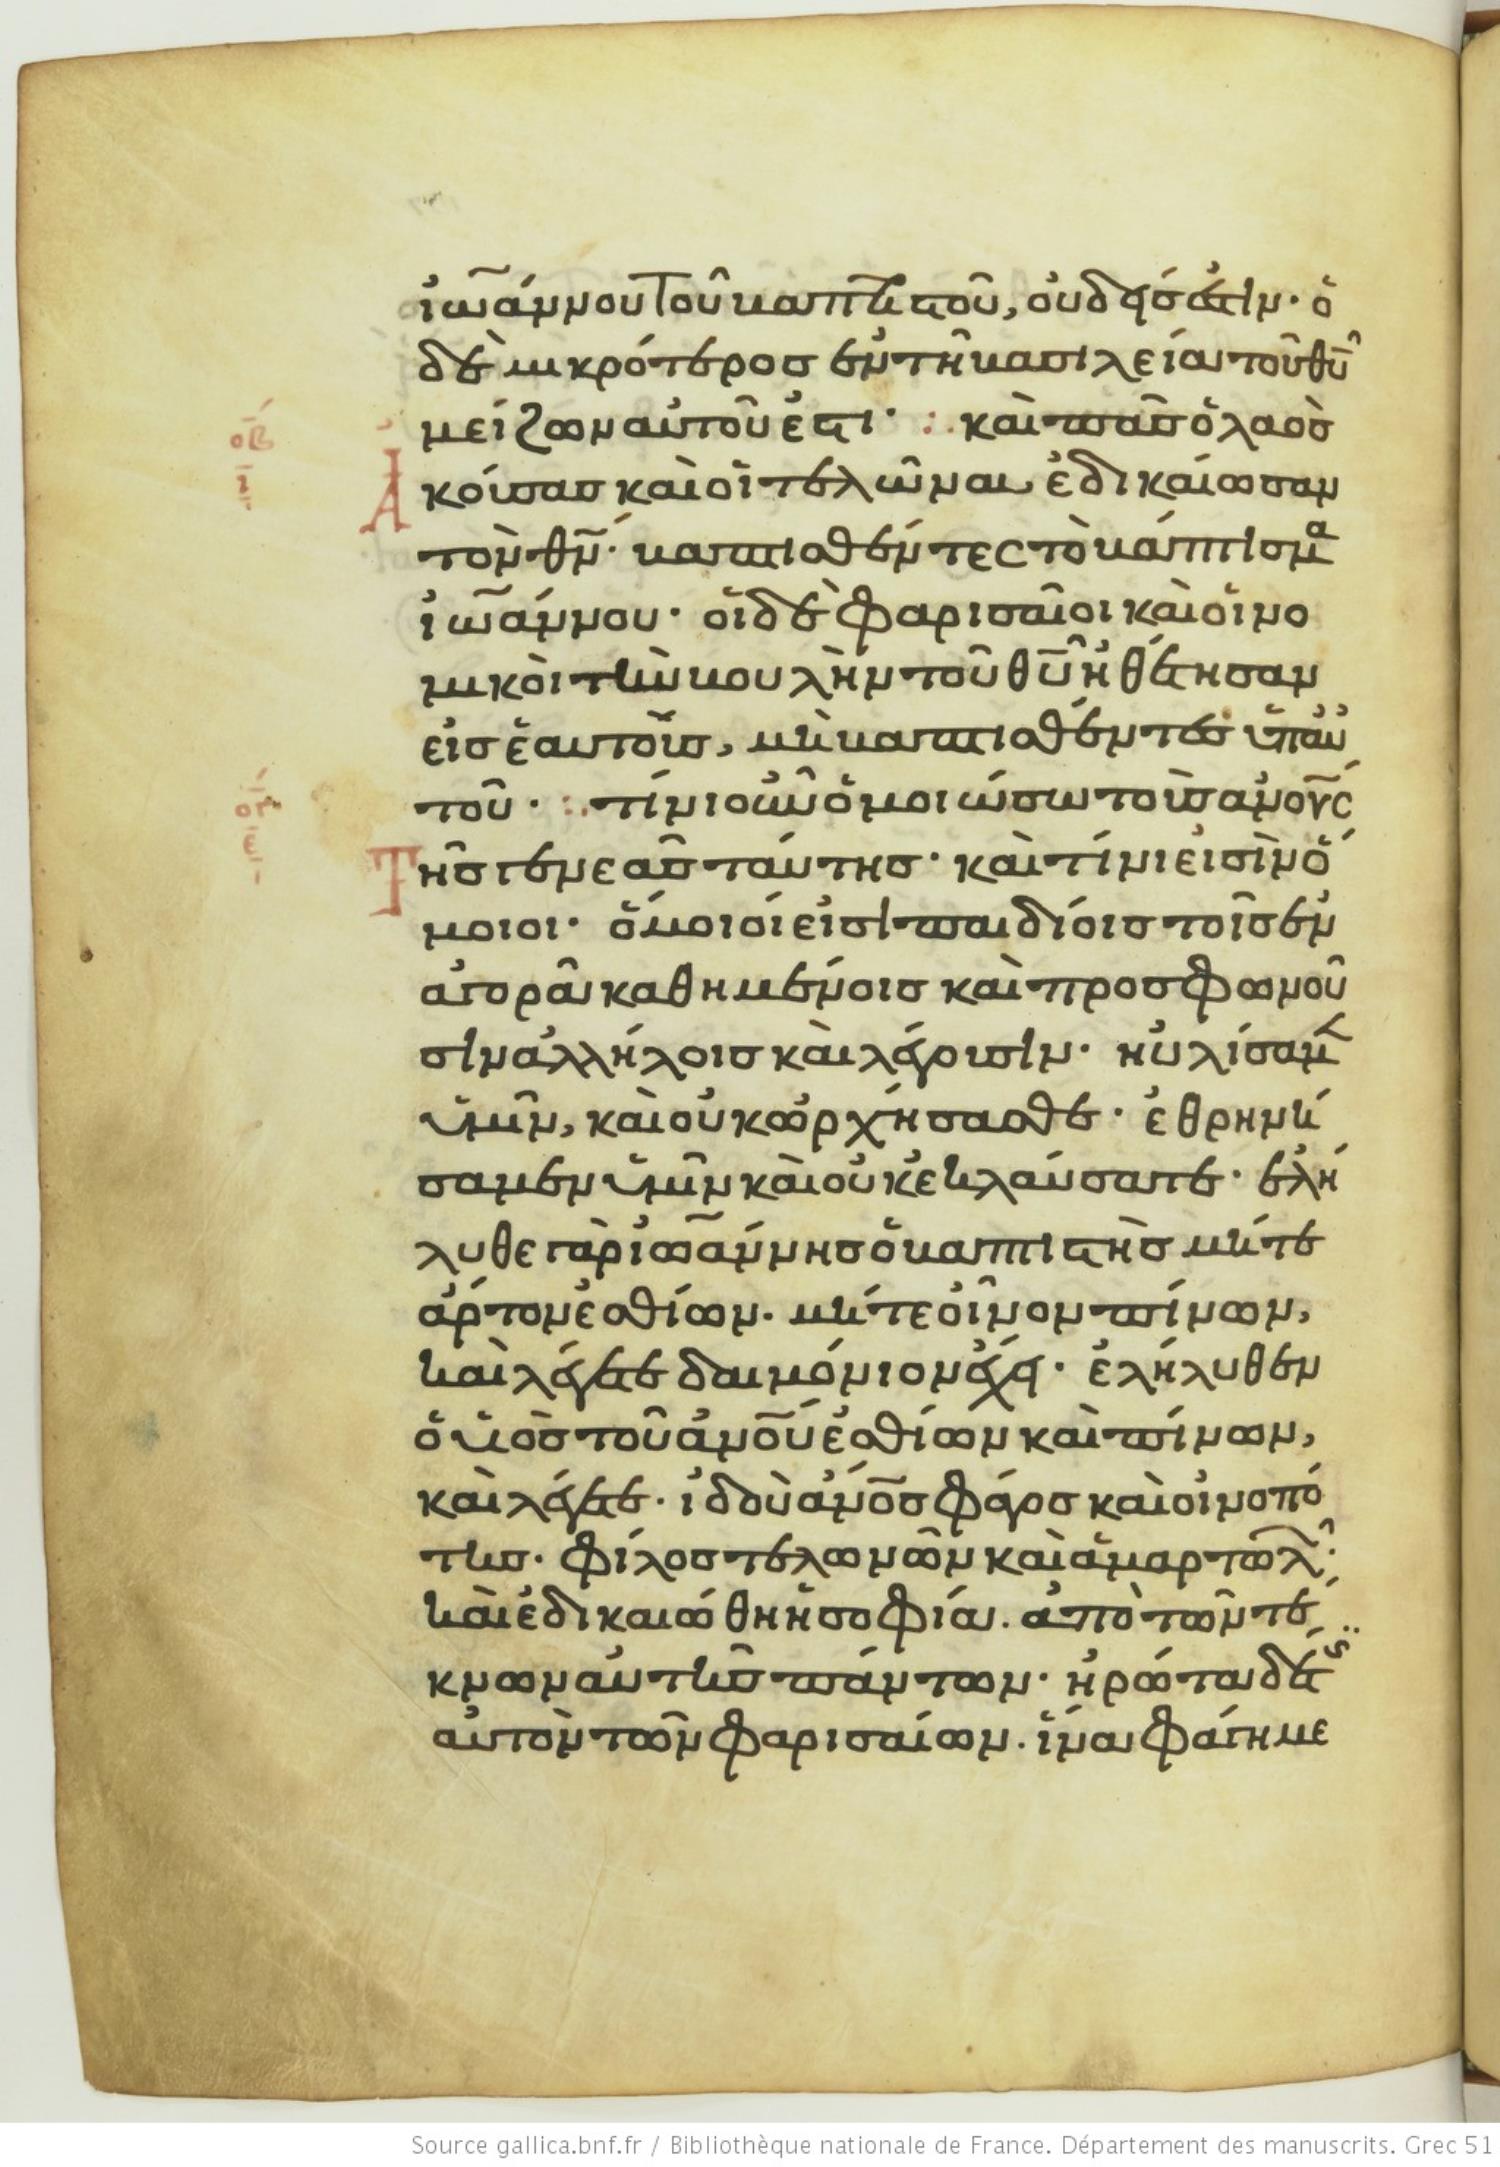 ἰω̅άννου τοῦ βαπτιστοῦ, οὐδείς ἐστιν· ὁ
δὲ μικρότερος ἐν τῆ βασιλεία τοῦ θ̅υ̅
μείζων αὐτοῦ ἐστι· :. καὶ πᾶς ὁ λαὸσ
Ἀκούσασ καὶ οἱ τελῶναι ἐδικαίωσαν
τὸν θ̅ν̅· βαπτισθέντες τὸ βάπτισμα
ἰω̅άννου· οἱ δὲ φαρισαῖοι καὶ οἱ νο
μικοὶ τὴν βουλὴν τοῦ θ̅υ̅ ἠθέτησαν
εἰσ ἑαυτούσ, μὴ βαπτισθέντεσ ὑπ' αὐ
τοῦ· :. τίνι οὖν ὁμοιώσω τοὺσ α̅ν̅ο̅υ̅ς
Τῆσ γενεᾶσ ταύτησ· καὶ τίνι εἰσὶν ὅ
μοιοι· ὅμοιοί εἰσι παιδίοισ τοῖσ ἐν
ἀγορᾶ καθημένοισ καὶ προσφωνοῦ
σιν ἀλλήλοισ καὶ λέγουσιν· ηὐλίσαμ
ὑμῖν, καὶ οὐκ ὠρχήσασθε· ἐθρηνή
σαμεν ὑμῖν καὶ οὐκ ἐκλαύσατε· ἐλή
λυθε γὰρ ἰω̅άννησ ὁ βαπτιστὴσ μήτε
ἄρτον ἐσθίων. μήτε οἶνον πίνων,
καὶ λέγετε δαιμόνιον ἔχει· ἐλήλυθεν
ὁ υἱὸσ τοῦ α̅ν̅ο̅υ̅ ἐσθίων καὶ πίνων,
καὶ λέγετε· ἰδοὺ α̅ν̅ο̅σ̅ φάγοσ καὶ οἰνοπό
τησ. φίλοσ τελωνῶν καὶ ἁμαρτωλ·
καὶ ἐδικαιώθη ἡ σοφία. ἀπὸ τῶν τέ
κνων αὐτῆσ πάντων· ἠρώτα δέ τισ
αὐτὸν τῶν φαρισαίων. ἵνα φάγη με
ο̅β̅
ι̅
ο̅γ̅
ε̅
Source gallica.bnf.fr / Bibliothèque nationale de France. Département des manuscrits. Grec 51